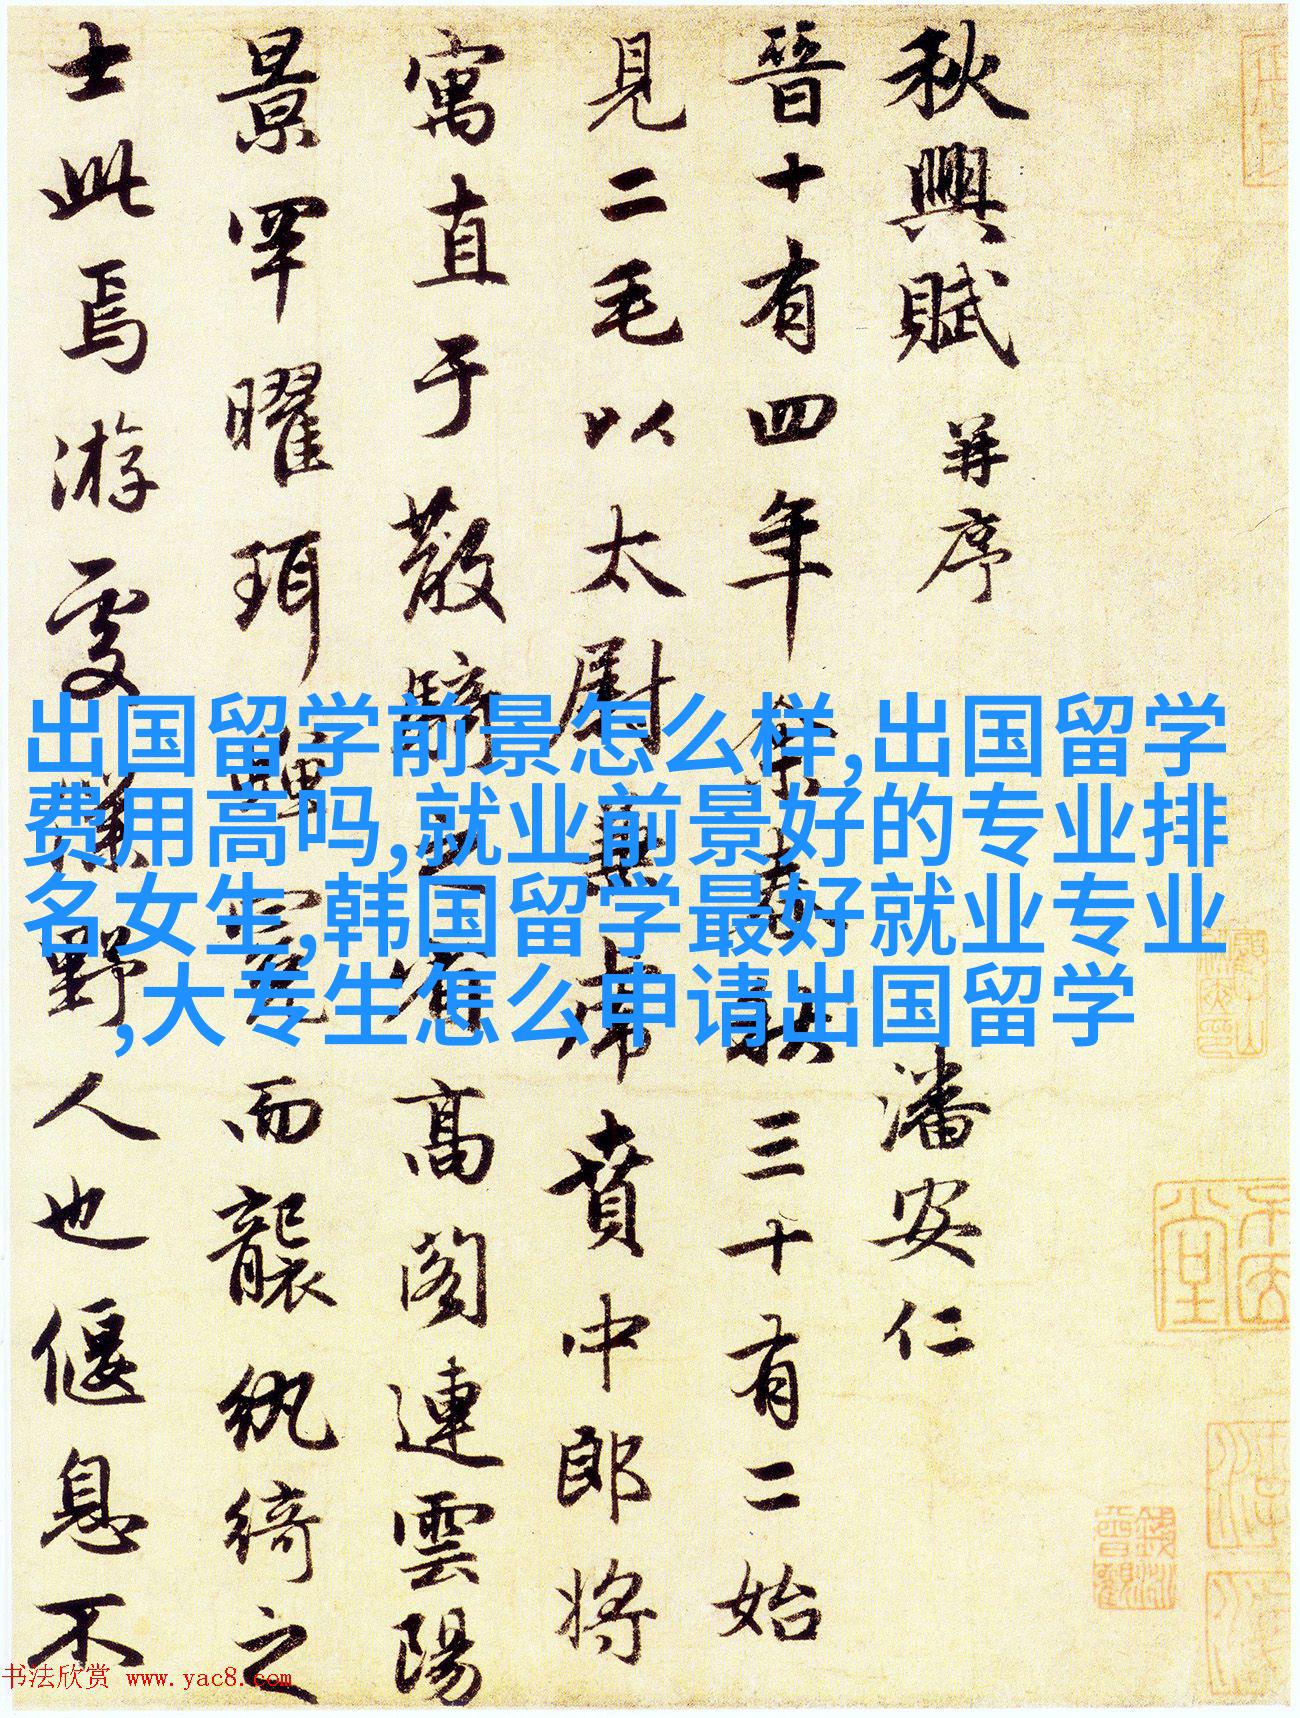 秋興賦 并序 潘安仁
晉十有四年余春秋三十有二始
見二毛以太尉兼虎賁中郎将
寓直于散騎之省高閣連雲陽
景罕曜珥蟬冕而襲紈綺之
士此焉游處僕野人也偃息不
出国留学前景怎么样,出国留学
费用高吗,就业前景好的专业排
名女生,韩国留学最好就业专业
,大专生怎么申请出国留学
书法欣赏 www.yac8.com